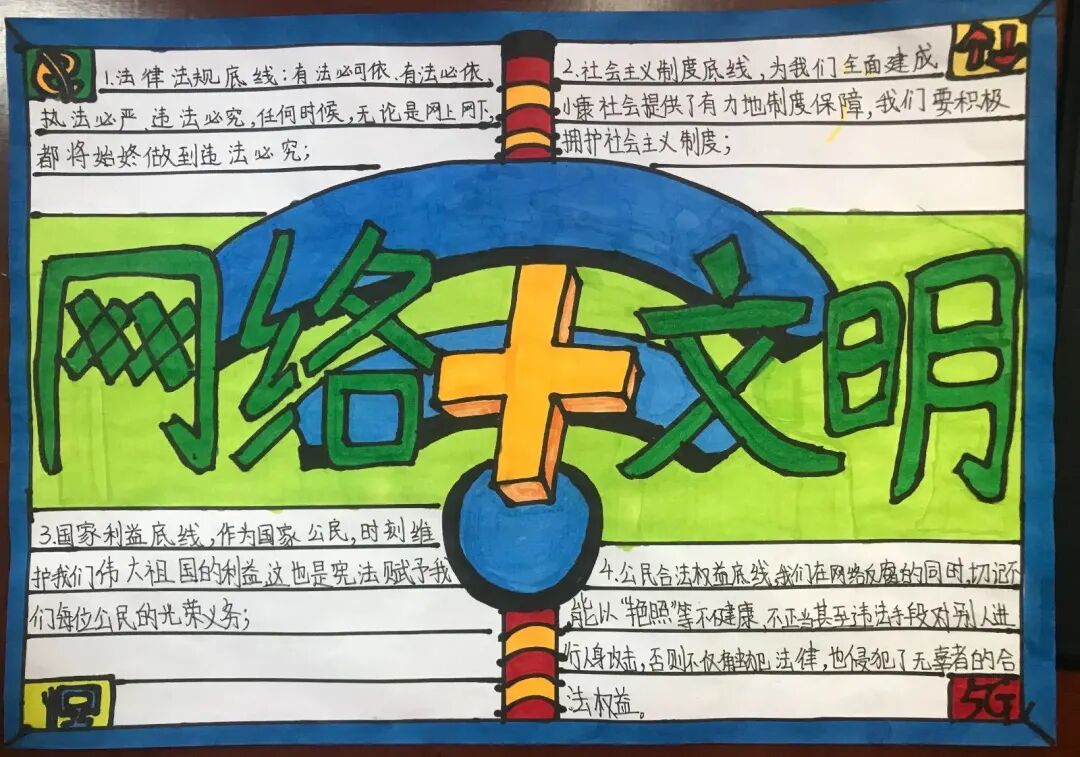 1.法律法规底线：有法必可依、有法必依、
执法必严、违法必究，任何时候，无论是网上网下，
都将始终做到违法必究；
2.社会主义制度底线，为我们全面建成
小康社会提供了有力地制度保障，我们要积极
拥护社会主义制度；
网络文明
3.国家利益底线，作为国家公民，时刻维
护我们伟大祖国的利益，这也是宪法赋予我
们每位公民的光荣义务；
4.公民合法权益底线，我们在网络反腐的同时，切记不
能以“艳照”等不健康、不正当甚至违法手段对别人进
行人身攻击，否则不仅触犯法律，也侵犯了无辜者的合
法权益。
5G